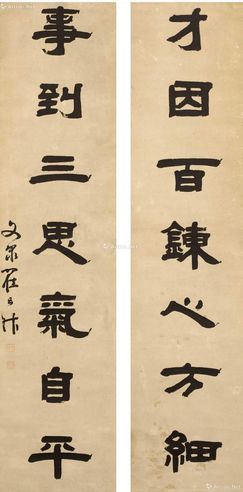 才因百鍊心方細
事到三思氣自平